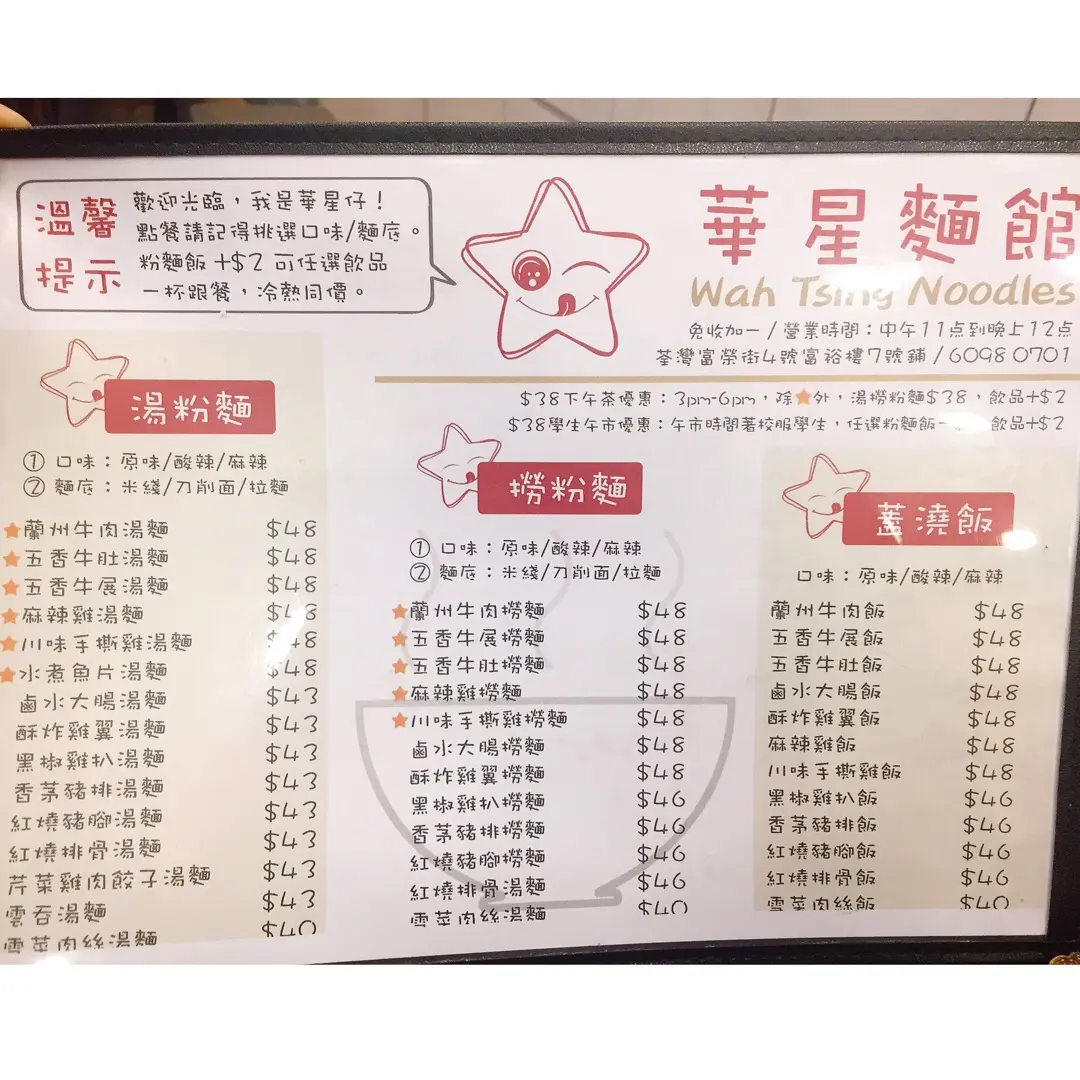 溫馨
提示
歡迎光臨，我是華星仔！
點餐請記得挑選口味/麵底。
粉麵飯+$2可任選飲品
一杯跟餐，冷熱同價。
華星麵館
Wah Tsing Noodles
免收加一/營業時間：中午11点到晚上12点
荃灣富榮街4號富裕樓7號鋪/6098 0701
$38下午茶優惠：3pm-6pm，除★外，湯撈粉麵$38，飲品+$2
$38學生午市優惠：午市時間著校服學生，任選粉麵飯一 飲品+$2
湯粉麵
① 口味：原味/酸辣/麻辣
② 麵底：米綫/刀削面/拉麵
★蘭州牛肉湯麵 $48
★五香牛肚湯麵 $48
★五香牛展湯麵 $48
★麻辣雞湯麵 $48
★川味手撕雞湯麵 $48
★水煮魚片湯麵 $48
鹵水大腸湯麵 $43
酥炸雞翼湯麵 $43
黑椒雞扒湯麵 $43
香茅豬排湯麵 $43
紅燒豬腳湯麵 $43
紅燒排骨湯麵 $43
芹菜雞肉餃子湯麵 $43
雲吞湯麵 $43
雪菜肉絲湯麵 $40
撈粉麵
① 口味：原味/酸辣/麻辣
② 麵底：米綫/刀削面/拉麵
★蘭州牛肉撈麵 $48
★五香牛展撈麵 $48
★五香牛肚撈麵 $48
★麻辣雞撈麵 $48
★川味手撕雞撈麵 $48
鹵水大腸撈麵 $48
酥炸雞翼撈麵 $48
黑椒雞扒撈麵 $46
香茅豬排撈麵 $46
紅燒豬腳撈麵 $46
紅燒排骨湯麵 $46
雪菜肉絲湯麵 $40
蓋澆飯
口味：原味/酸辣/麻辣
蘭州牛肉飯 $48
五香牛展飯 $48
五香牛肚飯 $48
鹵水大腸飯 $48
酥炸雞翼飯 $48
麻辣雞飯 $48
川味手撕雞飯 $48
黑椒雞扒飯 $46
香茅豬排飯 $46
紅燒豬腳飯 $46
紅燒排骨飯 $46
雪菜肉絲飯 $40